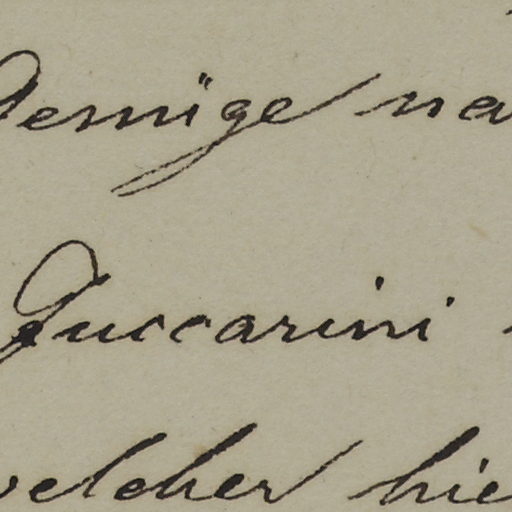 Demige na
Zuccarini
welcher hie